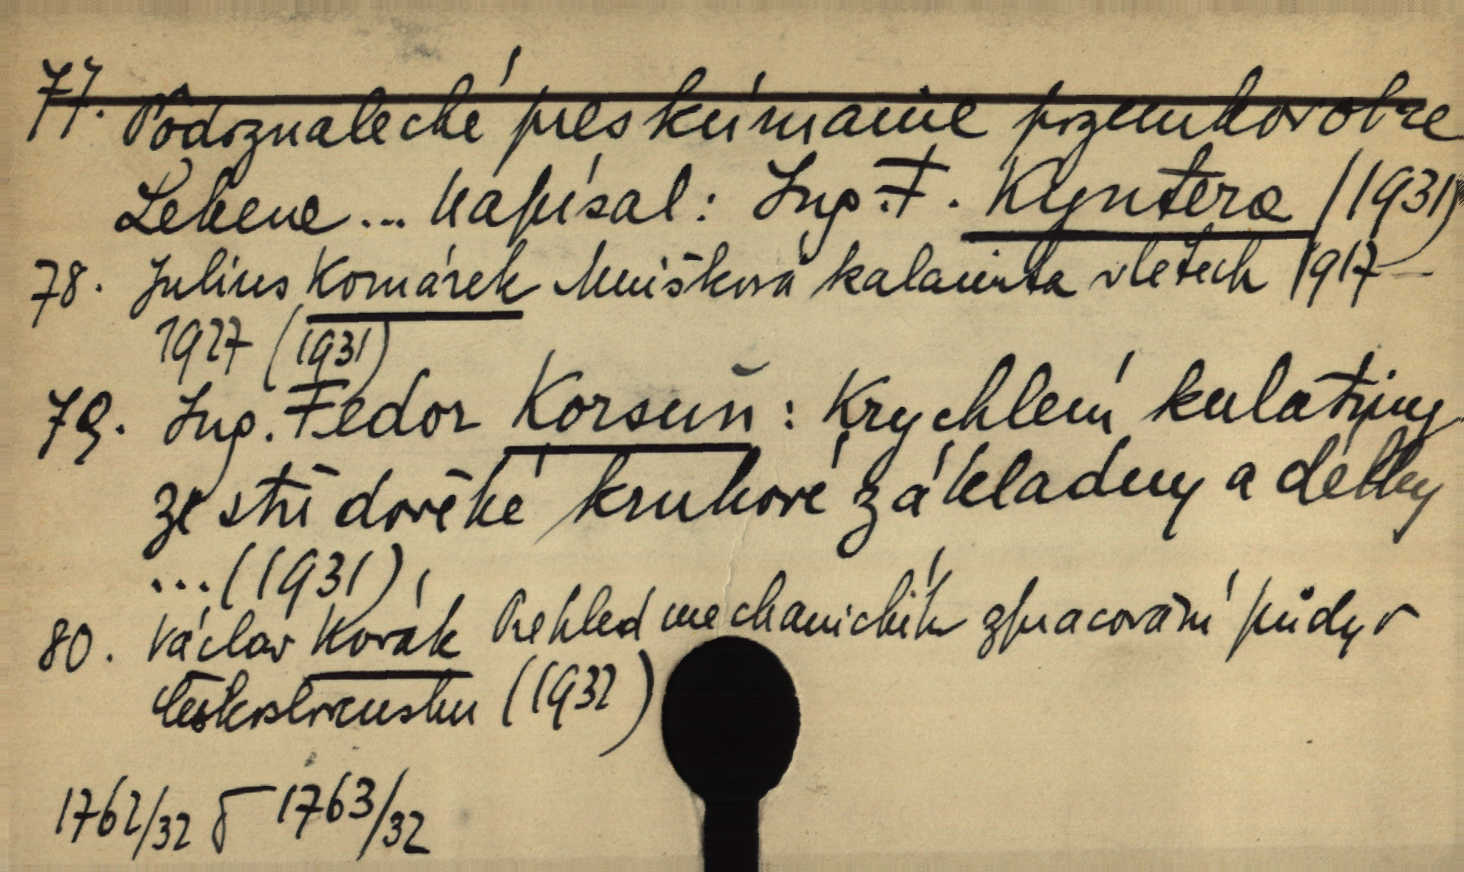 77. Pôdoznalecké preskúmanie pozemkov obce
Lekene... Napísal: Ing. F. Kyntera (1931)
78. Julius Komárek Mnišková kalamita v letech 1917–
1927 (1931)
79. Ing. Fedor Korsuň: Krychlení kulatiny
ze středové kruhové základny a délky
...(1931)
80. Václav Novák Přehled mechanických zpracování půdy v
Československu (1932)
1762/32 1763/32